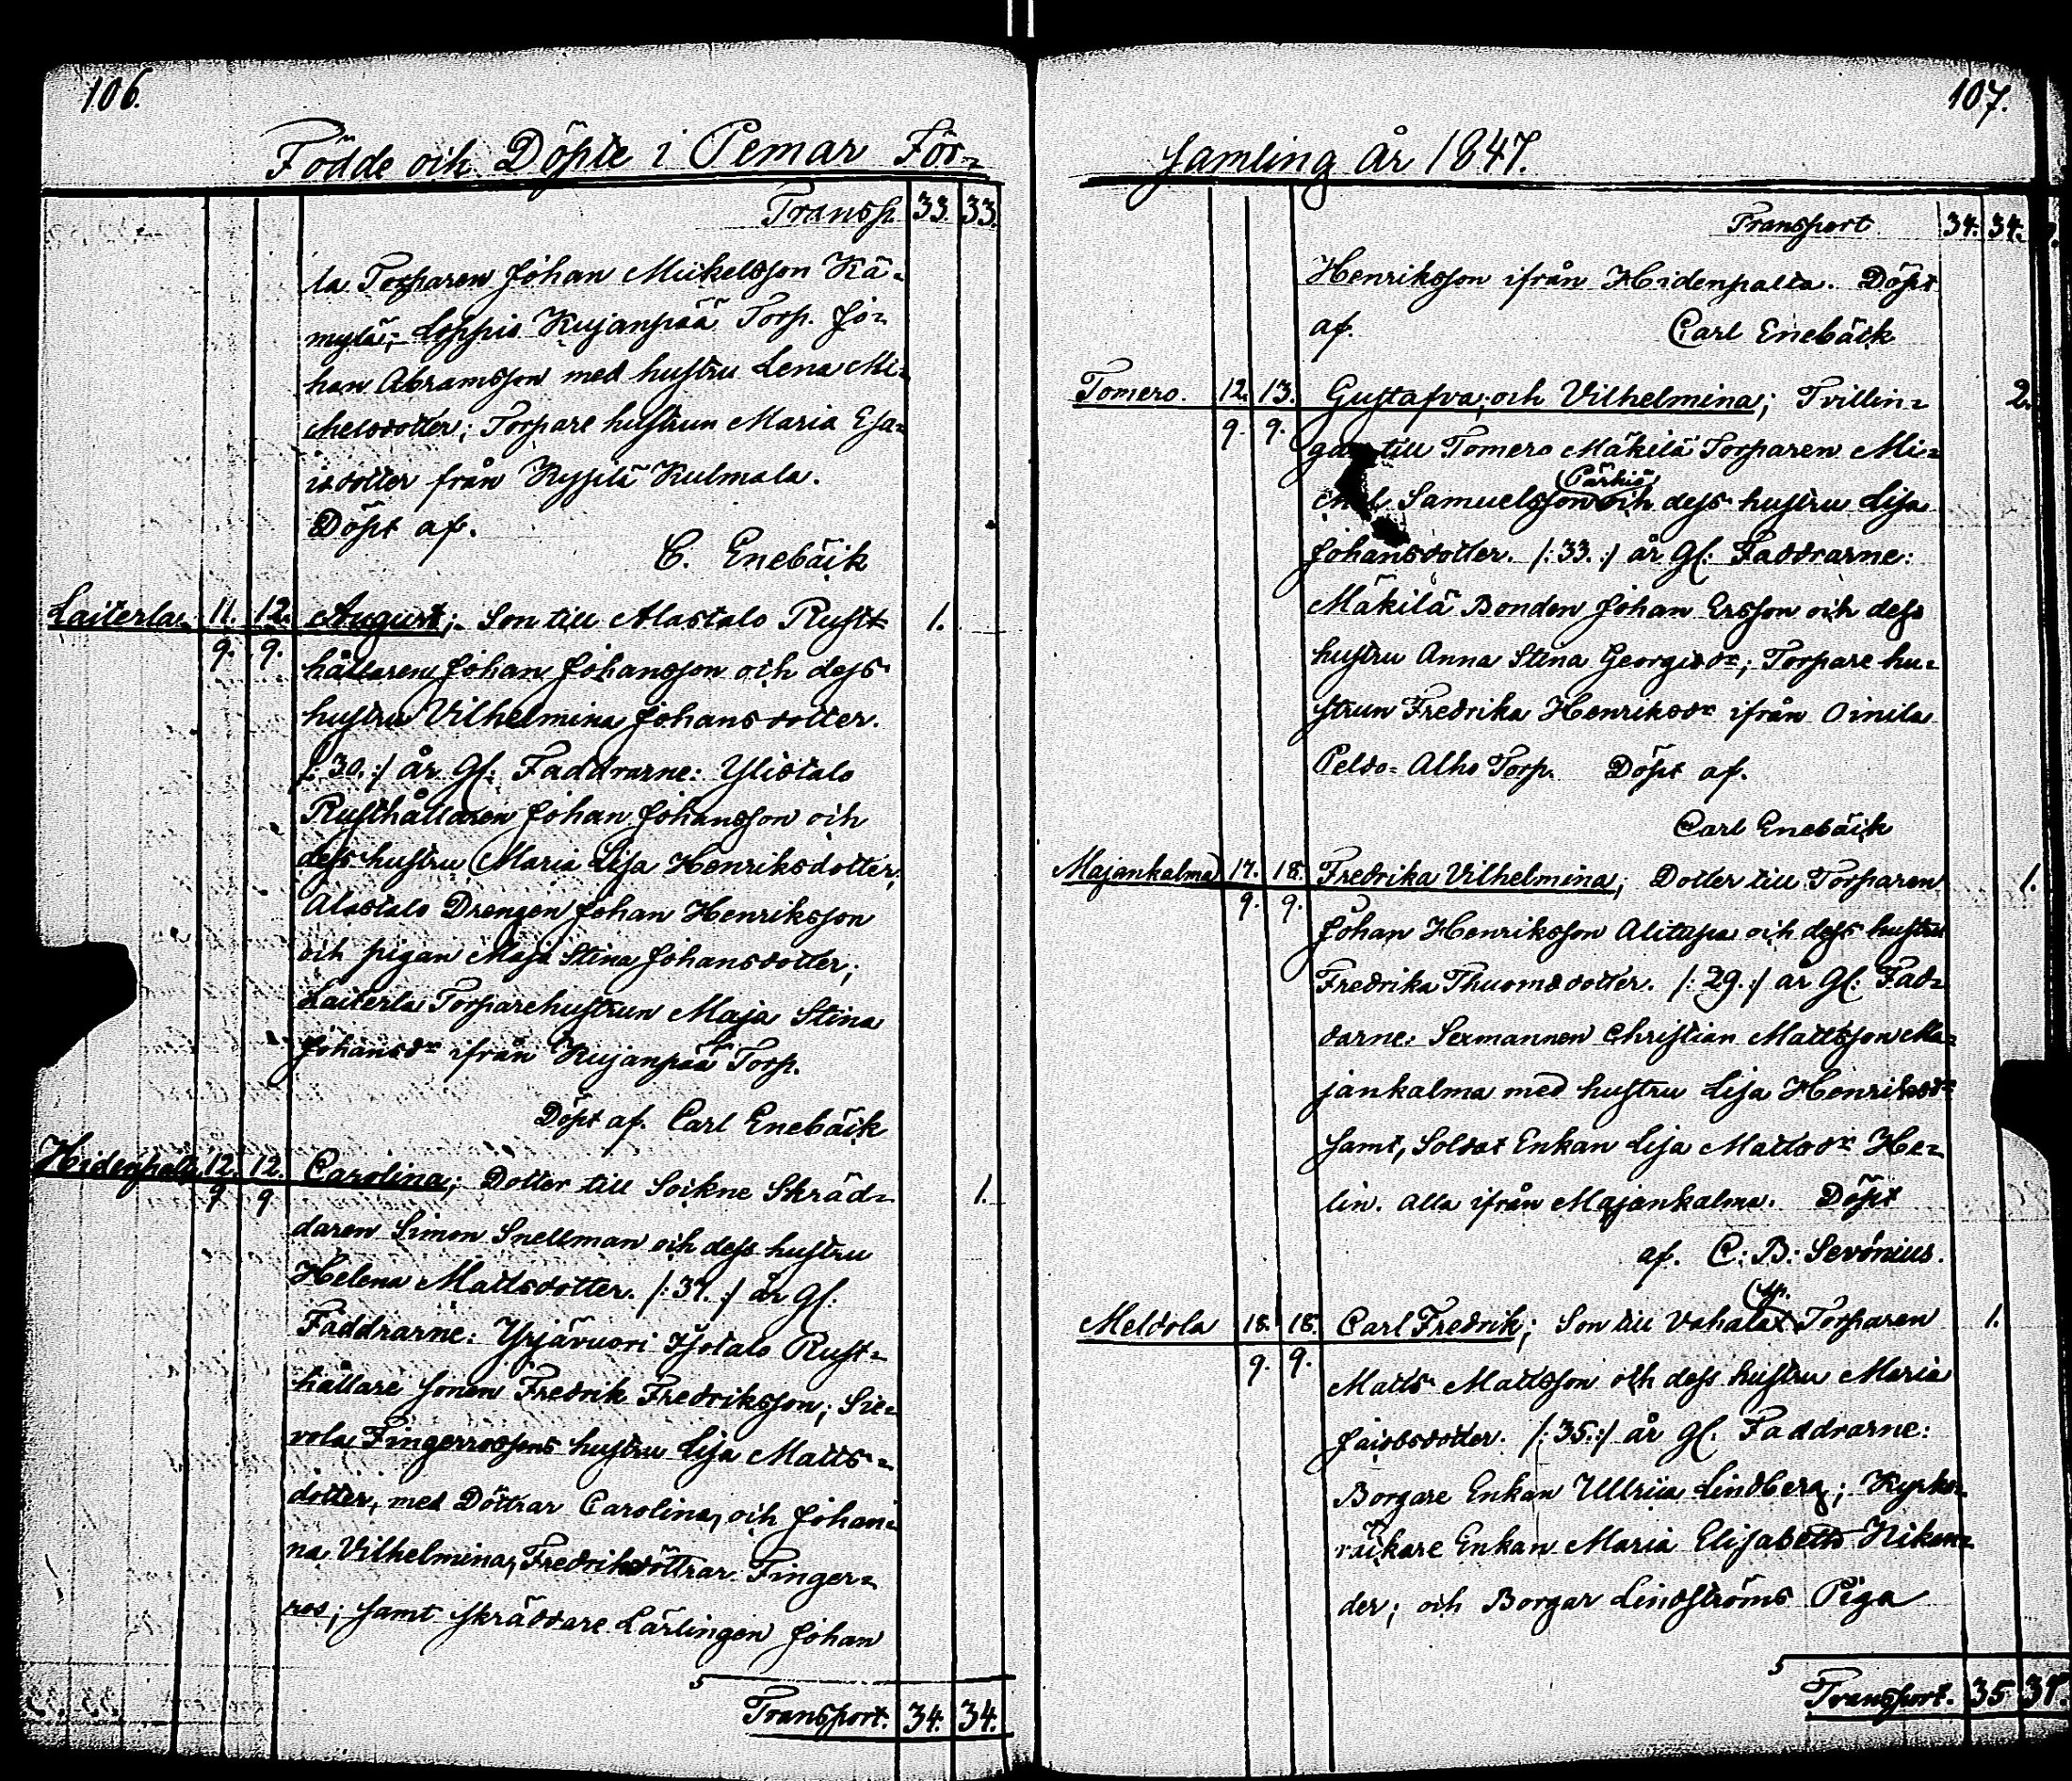 106.
Födde och Döpte i Pemar För-
Transp. 33. 33.
la Torparen Johan Mickelsson Kä-
mylä; Loppis Kujanpää Torp. Jo-
han Abramsson med hustru Lena Mi-
chelsdotter; Torpare hustrun Maria Esa-
isdotter från Kyysilä Kulmala.
Döpt af.
C. Enebäck
Laiterla. 11. 12. August; Son till Alastalo Rust 1.
9. 9. hållaren Johan Johansson och dess
hustru Vilhelmina Johansdotter.
/: 30. :/ år Gl: Faddrarne: Ylistalo
Rusthållaren Johan Johansson och
dess hustru Maria Lisa Henriksdotter,
Alastalo Drengen Johan Henriksson
och pigan Maja Stina Johansdotter;
Laiterla Torparehustrun Maja Stina
Johansdr ifrån Kujanpää Torp.
Döpt af. Carl Enebäck
Hidenpalta 12. 12. Carolina; Dotter till Sockne Skräd- 1.
9 9 daren Simon Snellman och dess hustru
Helena Mattsdotter. /: 37. :/ år Gl:
Faddrarne: Yrjävuori Isotalo Rust-
hållare sonen Fredrik Fredriksson; Sie-
vola Fingerroosens hustru Lisa Matts-
dotter, med Döttrar Carolina, och Johan-
na Vilhelmina, Fredriksdöttrar Finger-
ros; samt skräddare Lärlingen Johan
Transport. 34. 34.
107.
samling år 1847.
Transport 34. 34.
Henriksson ifrån Hidenpalta. Döpt
af. Carl Enebäck
Tomero. 12. 13. Gustafva; och Vilhelmina; Tvillin- 2.
9. 9. gar till Tomero Mäkilä Torparen Mi-
Pärkiö
chel Samuelsson och dess hustru Lisa
Johansdotter. /: 33. :/ år Gl: Faddrarne:
Mäkilä Bonden Johan Ersson och dess
hustru Anna Stina Georgisdr; Torpare hu-
strun Fredrika Henriksdr ifrån Oinila
Peldo-Alho Torp. Döpt af.
Carl Enebäck
Majankalma 17. 18. Fredrika Vilhelmina; Dotter till Torparen 1.
9. 9. Johan Henriksson Alitupa och dess hustru
Fredrika Thuomasdotter. /: 29. :/ år Gl: Fad-
darne: Sexmannen Christian Mattsson Ma-
jankalma med hustru Lisa Henriksdr
samt, Soldat Enkan Lisa Mattsdr He-
lin. Alla ifrån Majankalma. Döpt
af. C: B: Sevónius.
Meldola 18. 18. Carl Fredrik; Son till Vahala Torparen 1.
9. 9. Matts Mattsson och dess hustru Maria
Jacobsdotter. /: 35. :/ år Gl. Faddrarne:
Borgare Enkan Ullrica Lindberg; Kyrko-
räckare Enkan Maria Elisabeth Niken-
der; och Borgar Lindströms Piga
Transport. 35 37.